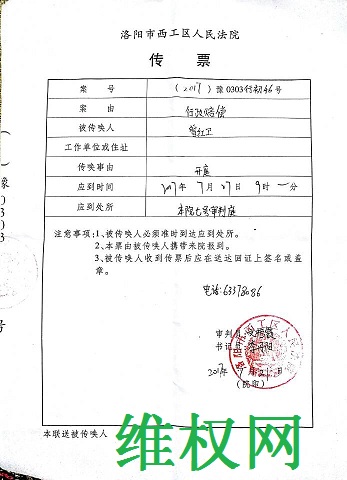 洛阳市西工区人民法院
传 票
案 号 (2017)豫0303行初46号
案 由 行政赔偿
被传唤人
工作单位或住址
传唤事由 开庭
应到时间 2017年7月27日9时 分
应到处所 本院七号审判庭
注意事项:1、被传唤人必须准时到达应到处所。
2、本票由被传唤人携带来院报到。
3、被传唤人收到传票后应在送达回证上签名或盖
章。
电话:63378086
审判员
书记员
2017年7月21日
(院印)
本联送被传唤人
维权网